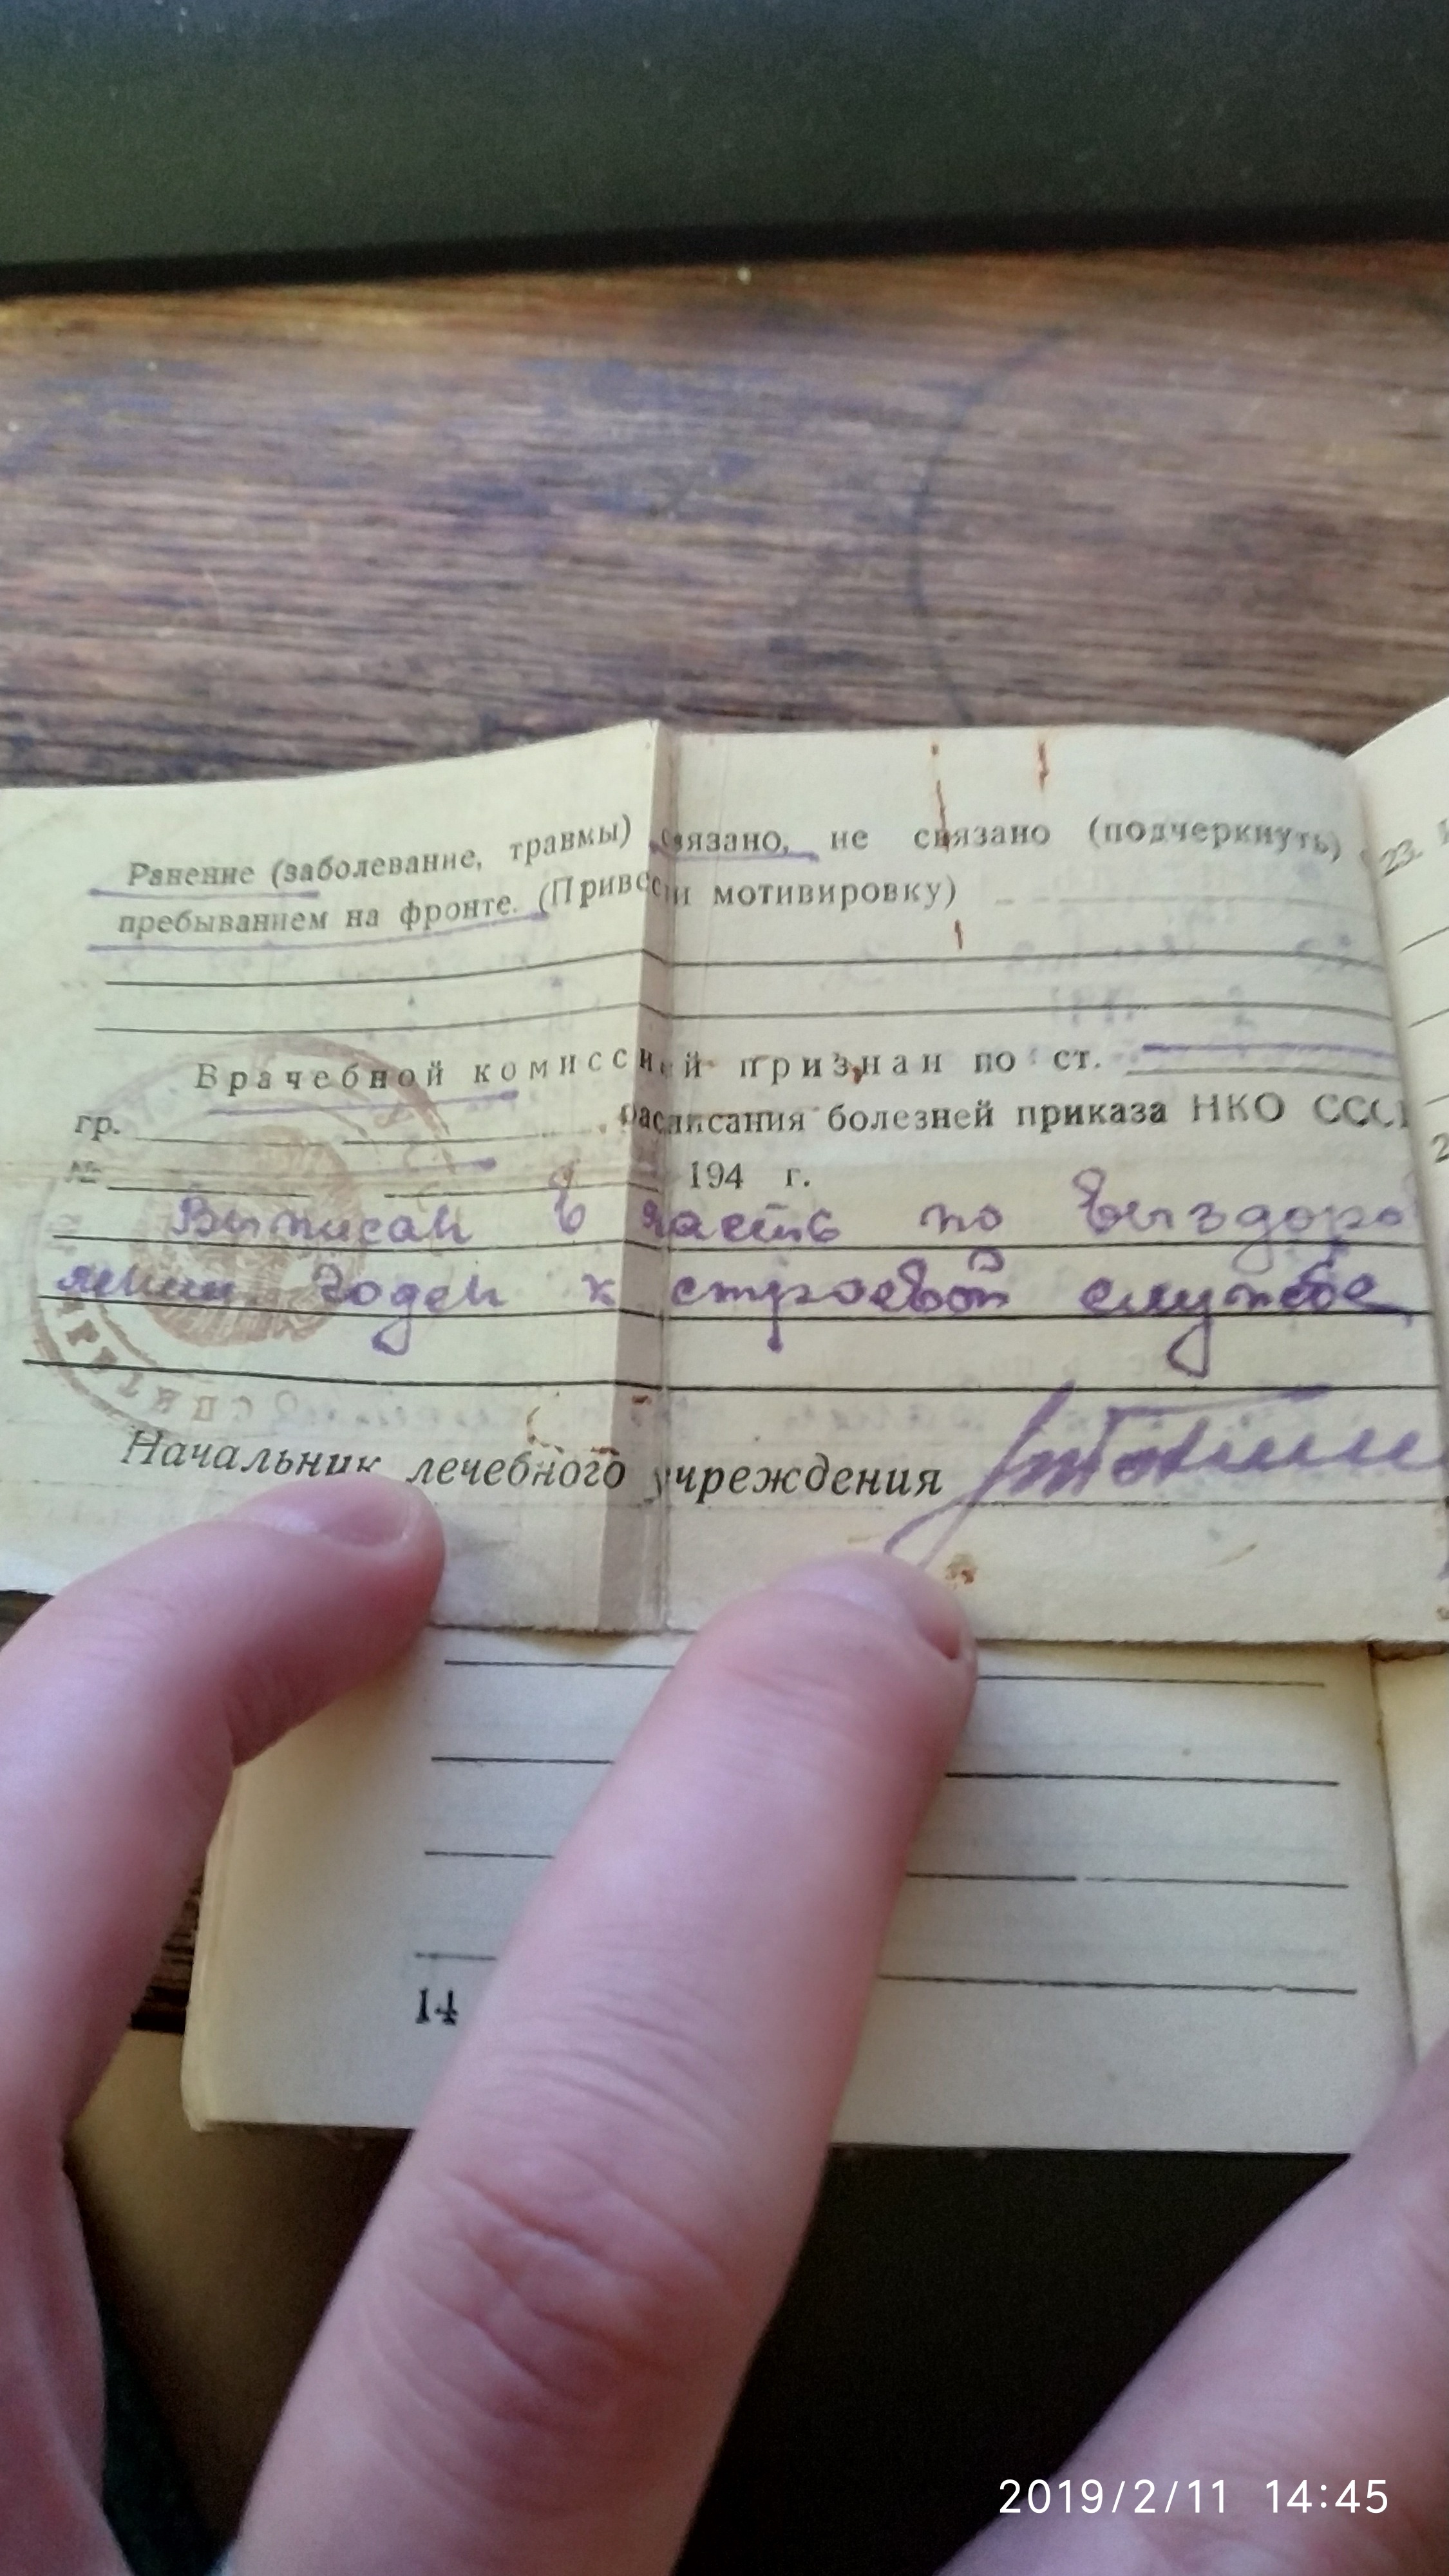 Ранение (заболевание, травмы) связано, не связано (подчеркнуть)
пребыванием на фронте. (Привести мотивировку)
Врачебной комиссией признан по ст.
гр. расписания болезней приказа НКО ССС
№ 194 г.
Выписан в часть по выздоро
лении Годен к строевой службе
Начальник лечебного учреждения
14
23.
2019/2/11 14:45